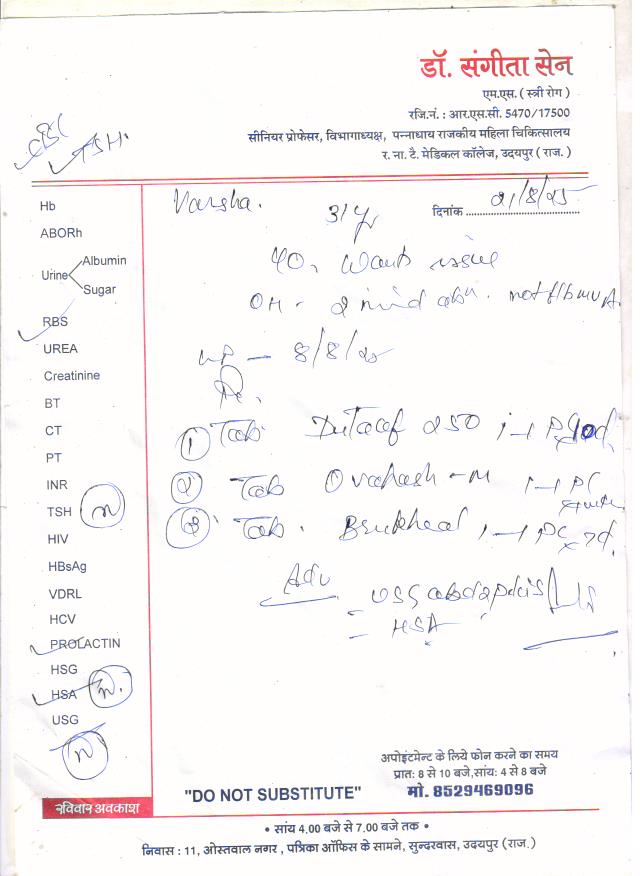 डॉ. संगीता सेन
एम.एस. ( स्त्री रोग )
रजि.नं. : आर.एस.सी. 5470/17500
सीनियर प्रोफेसर, विभागाध्यक्ष, पन्नाधाय राजकीय महिला चिकित्सालय
र. ना. टै. मेडिकल कॉलेज, उदयपुर ( राज. )
CBC
TSH
Varsha. 31 yr दिनांक 21/8/25
Wants issue
OH - 2
LMP - 8/8/25
Rx.
① Tab. 250 1-1 PC
② Tab Ovahash-M 1-1 PC
③ Tab. 1-1 PC x 7d.
Adv
= USG abd & pelvis
= HSA
Hb
ABORh
Urine Albumin
Sugar
RBS
UREA
Creatinine
BT
CT
PT
INR
TSH N
HIV
HBsAg
VDRL
HCV
PROLACTIN
HSG
HSA N.
USG
N
अपोइंटमेन्ट के लिये फोन करने का समय
प्रातः 8 से 10 बजे,सांय: 4 से 8 बजे
"DO NOT SUBSTITUTE" मो. 8529469096
रविवार अवकाश
• सांय 4.00 बजे से 7.00 बजे तक •
निवास : 11, ओस्तवाल नगर , पत्रिका ऑफिस के सामने, सुन्दरवास, उदयपुर (राज.)